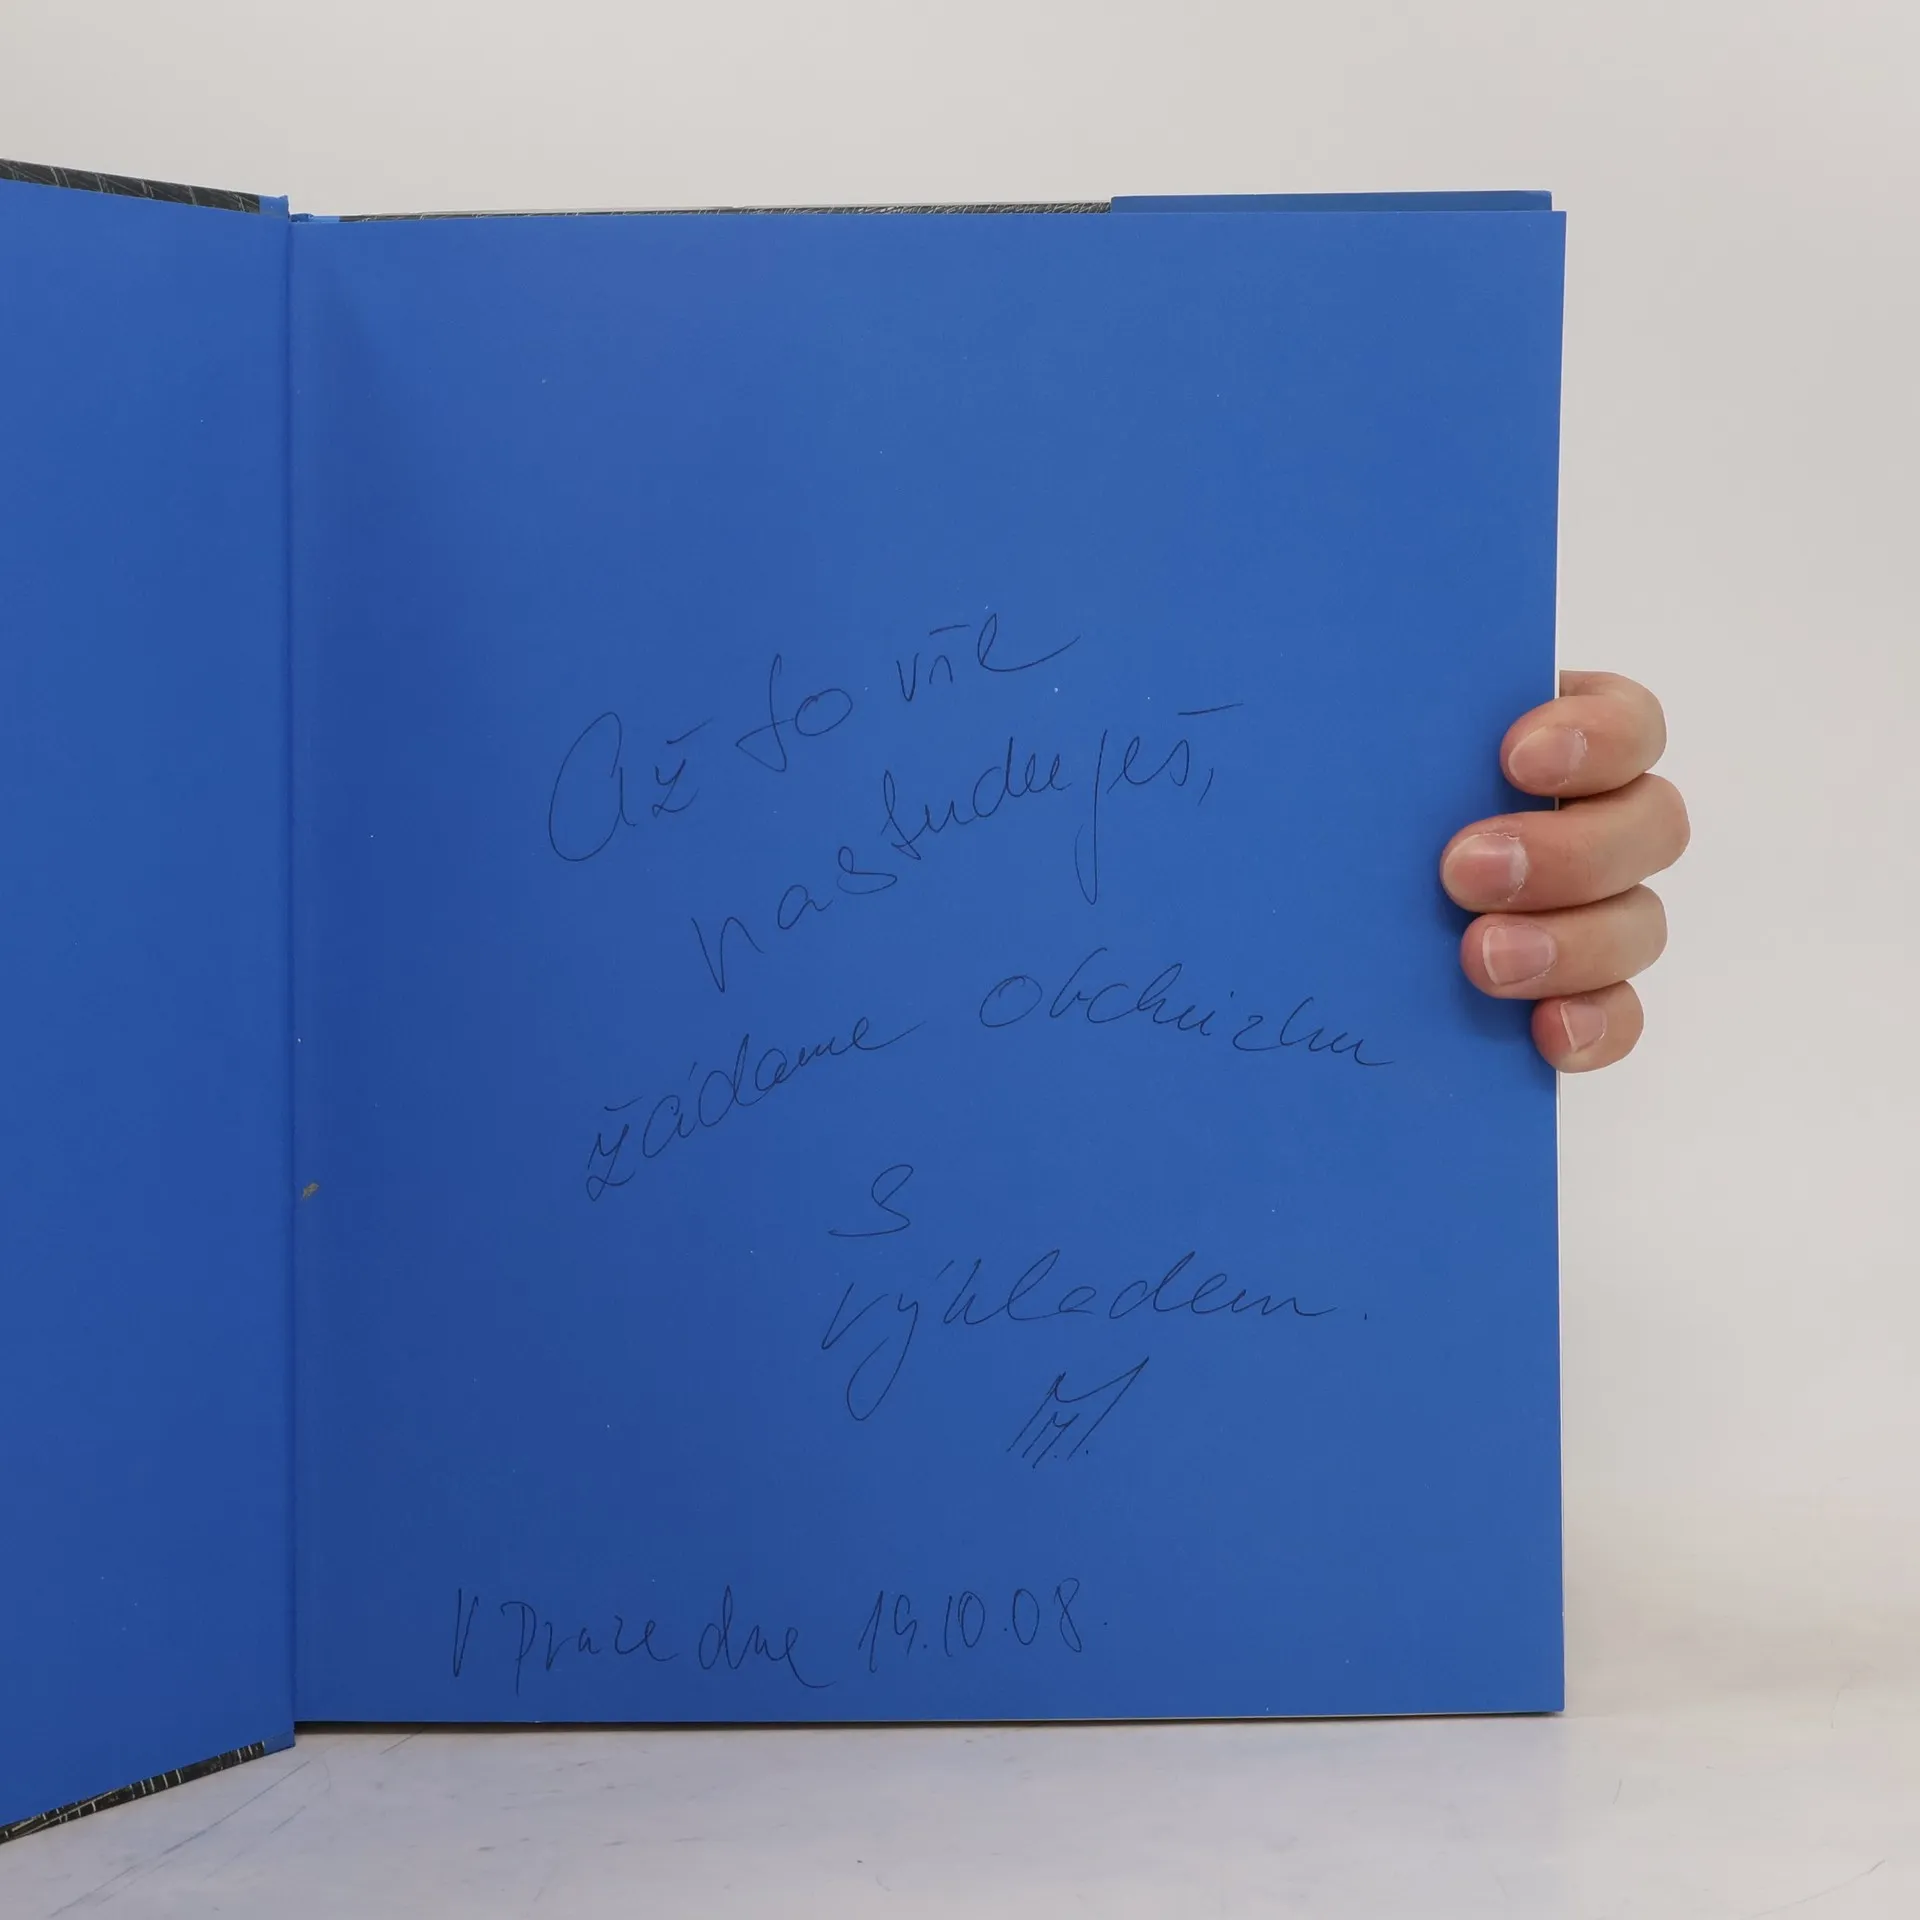 Až to vše
nastuduješ,
žádáme obchůzku
s
výhledem.
V Praze dne 19.10.08.